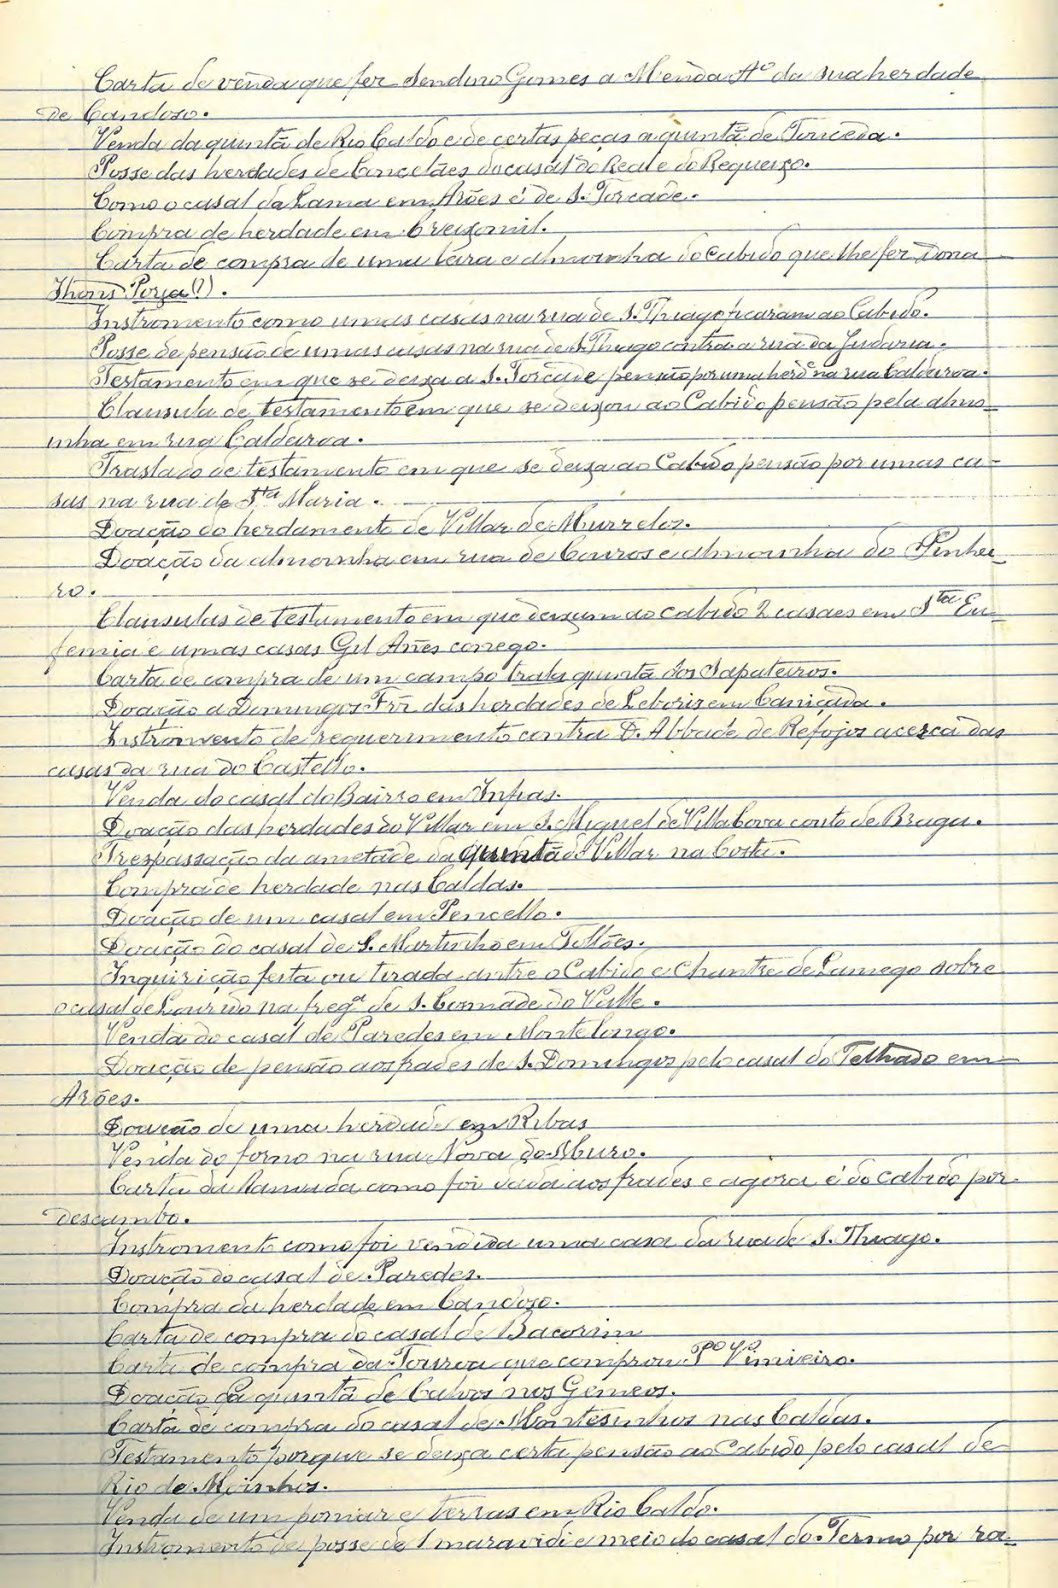 Carta de venda que fez Sendino Gomes a Menda Aº da sua herdade
de Candoso.
Venda da quintã de Rio Caldo e de certas peças a quintã de Torceda.
Posse das herdades de Concelães do casal do Real e do Requeixo.
Como o casal da Lama em Arões é de S. Torcade.
Compra de herdade em Creixomil.
Carta de compra de uma lara e almoinha do Cabido que lhe fez Dona
Jhons Porja(?).
Instromento como umas casas na rua de S. Thiago ficaram ao Cabido.
Posse de pensão de umas casas na rua de S. Thiago contra a rua da Judaria.
Testamento em que se deixa a S. Torcade pensão por uma herdᵉ na rua Caldeiroa.
Clausula de testamento em que se deixou ao Cabido pensão pela almo-
inha em rua Caldeiroa.
Traslado de testamento em que se deixa ao Cabido pensão por umas ca-
sas na rua de Sᵗᵃ Maria.
Doação do herdamento de Villar de Murrelos.
Doação da almoinha em rua de Couros e almoinha do Pinhei-
ro.
Clausulas de testamento em que deixam ao cabido 2 casaes em Sᵗᵃ Eu-
femia e umas casas Gil Añes conego.
Carta de compra de um campo trala quintã dos Sapateiros.
Doação a Domingos Frz das herdades de Leboriz em Caniçada.
Instromento de requerimento contra D. Abbade de Refojos acerca das
casas da rua do Castello.
Venda do casal do Bairro em Infias.
Doação das herdades do Villar em S. Miguel de Villa Cova couto de Braga.
Trespassação da ametade da quintã de Villar na Costa.
Compra de herdade nas Caldas.
Doação de um casal em Pencello.
Doação do casal de S. Martinho em Tellões.
Inquirição feita ou tirada antre o Cabido e Chantre de Lamego sobre
o casal de Lourido na fregª de S. Comade do Valle.
Venda do casal de Paredes em Montelongo.
Doação de pensão aos frades de S. Domingos pelo casal do Telhado em
Arões.
Doação de uma herdade em Ribas
Venda do forno na rua Nova do Muro.
Carta da Ramada como foi dada aos frades e agora é do cabido por
descambo.
Instromento como foi vendida uma casa da rua de S. Thiago.
Doação do casal de Paredes.
Compra da herdade em Candoso.
Carta de compra do casal de Bacorim
Carta de compra da Touroa que comprou Pº Vimieiro.
Doação da quintã de Calvos nos Gemeos.
Carta de compra do casal de Montesinhos nas Caldas.
Testamento porque se deixa certa pensão ao Cabido pelo casal de
Rio de Moinhos.
Venda de um pomar e terras em Rio Caldo.
Instromento de posse de 1 maravidi e meio do casal do Termo por ra-